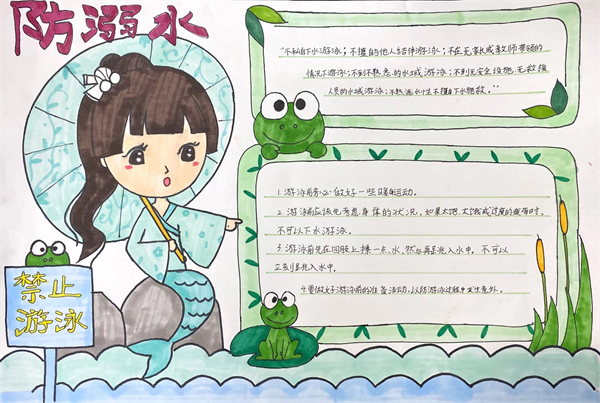 防溺水
"不私自下水游泳；不擅自与他人结伴游泳；不在无家长或教师带领的
情况下游泳；不到不熟悉的水域游泳；不到无安全设施、无救援
人员的水域游泳；不熟悉水性不擅自下水施救。"
1.游泳前务必做好一些暖身运动。
2.游泳前应该先考虑身体的状况，如果太饱、太饿或过度的疲劳时，
不可以下水游泳。
3.游泳前先在四肢上撩一点、水，然后再是先入水中。不可以
立刻是先入水中。
4.要做好游泳前的准备活动，以防游泳过程中发生意外。
禁止
游泳